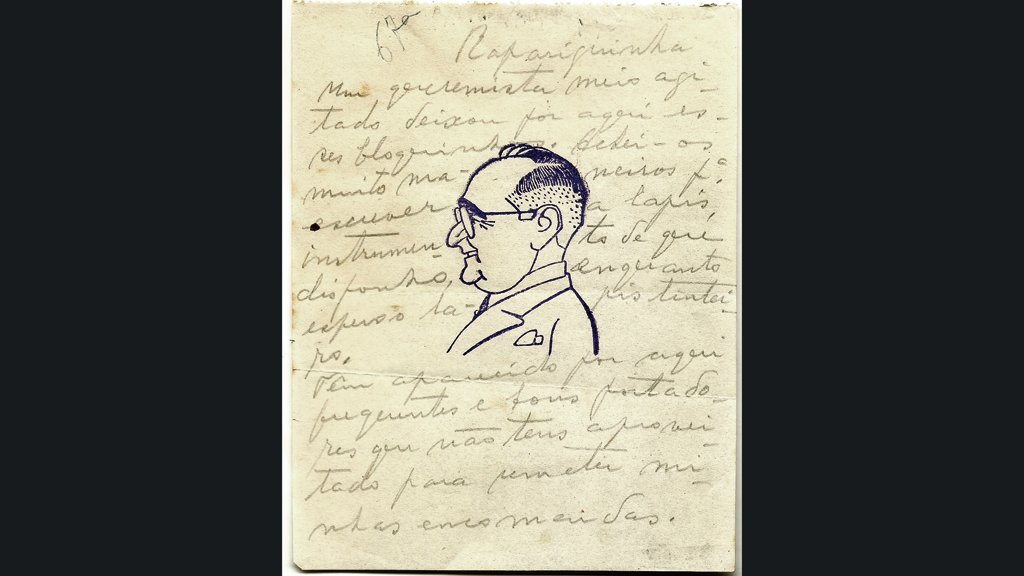 Rapariguinha
Um queremista meio agi-
tado deixou por aqui es-
ses bloquinhos. Achei-os
muito ma- neiros pª
escrever a lapis,
instrumen- to de que
disponho, enquanto
espero la- pis tintei-
ro.
Têm aparecido por aqui
frequentes e bons portado-
res que não tens aprovei-
tado para remeter mi-
nhas encomendas.